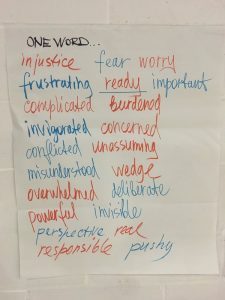 ONE WORD...
injustice fear worry
frustrating ready important
complicated burdened
invigorated concerned
conflicted unassuming
misunderstood wedge
overwhelmed deliberate
powerful invisible
perspective real
responsible pushy